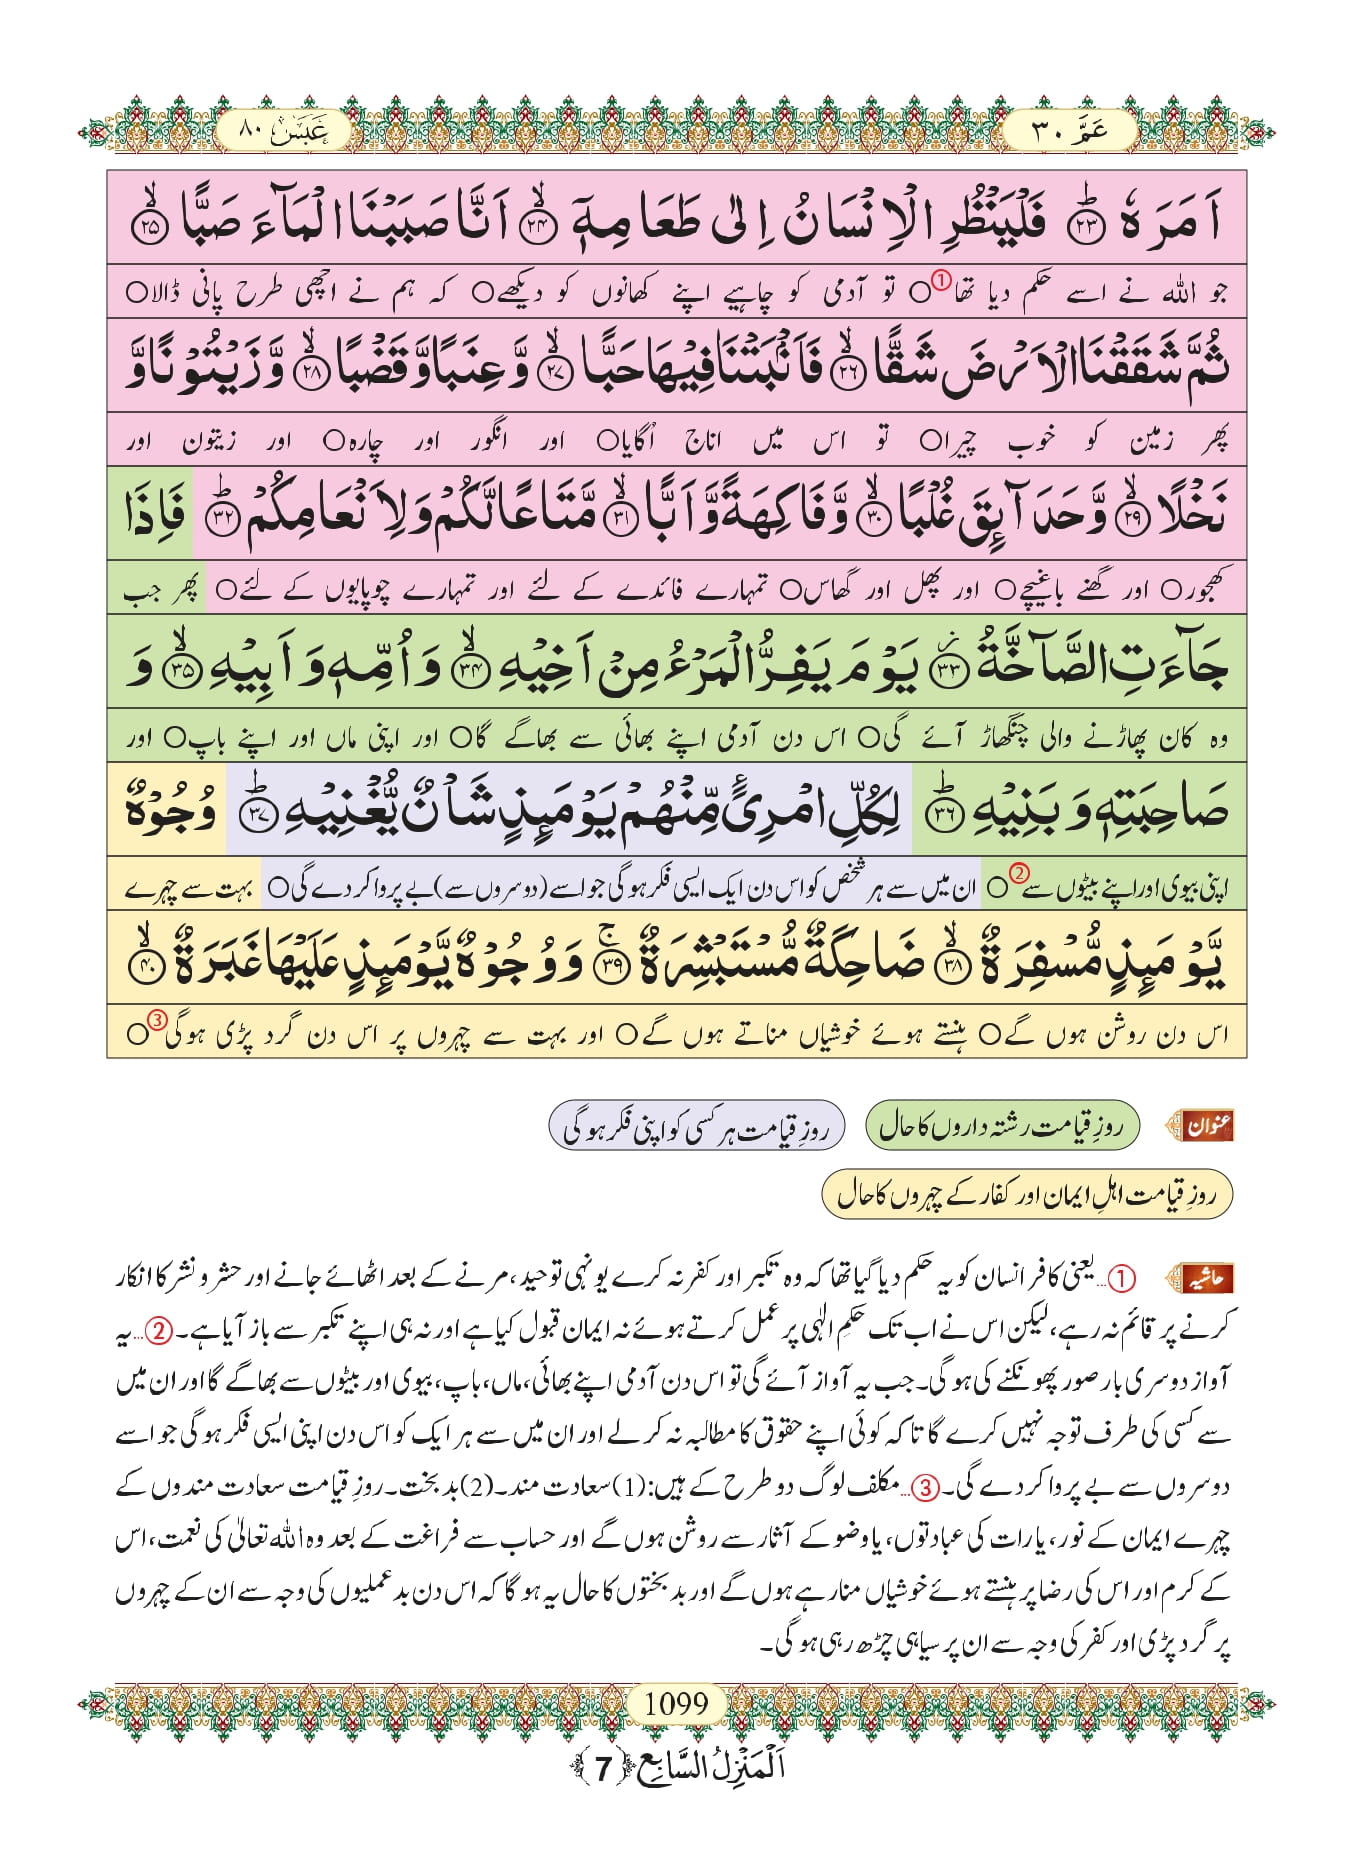 عَمَّ ٣٠
عَبَسَ ٨٠
اَمَرَهٗ ﴿۲۳﴾ؕ فَلْیَنْظُرِ الْاِنْسَانُ اِلٰى طَعَامِهٖۤ ﴿۲۴﴾ۙ اَنَّا صَبَبْنَا الْمَآءَ صَبًّا ﴿۲۵﴾ۙ
جو اللہ نے اسے حکم دیا تھا①○ تو آدمی کو چاہیے اپنے کھانوں کو دیکھے○ کہ ہم نے اچھی طرح پانی ڈالا○
ثُمَّ شَقَقْنَا الْاَرْضَ شَقًّا ﴿۲۶﴾ۙ فَاَنْۢبَتْنَا فِیْهَا حَبًّا ﴿۲۷﴾ۙ وَّ عِنَبًا وَّ قَضْبًا ﴿۲۸﴾ۙ وَّ زَیْتُوْنًا وَّ
پھر زمین کو خوب چیرا○ تو اس میں اناج اُگایا○ اور انگور اور چارہ○ اور زیتون اور
نَخْلًا ﴿۲۹﴾ۙ وَّ حَدَآىٕقَ غُلْبًا ﴿۳۰﴾ۙ وَّ فَاكِهَةً وَّ اَبًّا ﴿۳۱﴾ۙ مَّتَاعًا لَّكُمْ وَ لِاَنْعَامِكُمْ ﴿۳۲﴾ؕ فَاِذَا
کھجور○ اور گھنے باغیچے○ اور پھل اور گھاس○ تمہارے فائدے کے لئے اور تمہارے چوپایوں کے لئے○ پھر جب
جَآءَتِ الصَّآخَّةُ ﴿۳۳﴾٘ یَوْمَ یَفِرُّ الْمَرْءُ مِنْ اَخِیْهِ ﴿۳۴﴾ۙ وَ اُمِّهٖ وَ اَبِیْهِ ﴿۳۵﴾ۙ وَ
وہ کان پھاڑنے والی چنگھاڑ آئے گی○ اس دن آدمی اپنے بھائی سے بھاگے گا○ اور اپنی ماں اور اپنے باپ○ اور
صَاحِبَتِهٖ وَ بَنِیْهِ ﴿۳۶﴾ؕ لِكُلِّ امْرِئٍ مِّنْهُمْ یَوْمَىٕذٍ شَاْنٌ یُّغْنِیْهِ ﴿۳۷﴾ؕ وُجُوْهٌ
اپنی بیوی اور اپنے بیٹوں سے②○ ان میں سے ہر شخص کو اس دن ایک ایسی فکر ہوگی جو اسے (دوسروں سے) بے پروا کر دے گی○ بہت سے چہرے
یَّوْمَىٕذٍ مُّسْفِرَةٌ ﴿۳۸﴾ۙ ضَاحِكَةٌ مُّسْتَبْشِرَةٌ ﴿۳۹﴾ۚ وَ وُجُوْهٌ یَّوْمَىٕذٍ عَلَیْهَا غَبَرَةٌ ﴿۴۰﴾ۙ
اس دن روشن ہوں گے○ ہنستے ہوئے خوشیاں مناتے ہوں گے○ اور بہت سے چہروں پر اس دن گرد پڑی ہوگی③○
عنوان روزِ قیامت رشتہ داروں کا حال روزِ قیامت ہر کسی کو اپنی فکر ہوگی
روزِ قیامت اہلِ ایمان اور کفار کے چہروں کا حال
حاشیہ ①... یعنی کافر انسان کو یہ حکم دیا گیا تھا کہ وہ تکبر اور کفر نہ کرے یونہی توحید، مرنے کے بعد اٹھائے جانے اور حشر و نشر کا انکار
کرنے پر قائم نہ رہے، لیکن اس نے اب تک حکمِ الٰہی پر عمل کرتے ہوئے نہ ایمان قبول کیا ہے اور نہ ہی اپنے تکبر سے باز آیا ہے۔ ②... یہ
آواز دوسری بار صور پھونکنے کی ہوگی۔ جب یہ آواز آئے گی تو اس دن آدمی اپنے بھائی، ماں، باپ، بیوی اور بیٹوں سے بھاگے گا اور ان میں
سے کسی کی طرف توجہ نہیں کرے گا تاکہ کوئی اپنے حقوق کا مطالبہ نہ کرلے اور ان میں سے ہر ایک کو اس دن اپنی ایسی فکر ہوگی جو اسے
دوسروں سے بے پروا کر دے گی۔ ③... مکلف لوگ دو طرح کے ہیں: (1) سعادت مند۔ (2) بدبخت۔ روزِ قیامت سعادت مندوں کے
چہرے ایمان کے نور، یا رات کی عبادتوں، یا وضو کے آثار سے روشن ہوں گے اور حساب سے فراغت کے بعد وہ اللہ تعالیٰ کی نعمت، اس
کے کرم اور اس کی رضا پر ہنستے ہوئے خوشیاں منا رہے ہوں گے اور بدبختوں کا حال یہ ہوگا کہ اس دن بدعملیوں کی وجہ سے ان کے چہروں
پر گرد پڑی اور کفر کی وجہ سے ان پر سیاہی چڑھ رہی ہوگی۔
1099
اَلْمَنْزِلُ السَّابِع ﴿7﴾